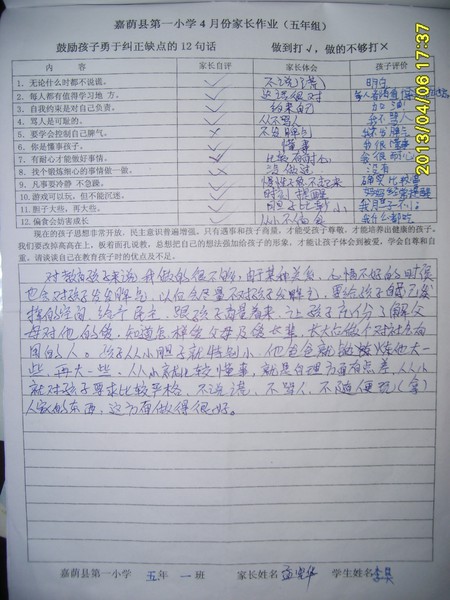 嘉荫县第一小学4月份家长作业（五年组）
鼓励孩子勇于纠正缺点的12句话 做到打√，做的不够打×
内 容 家长自评 家长体会 孩子评价
1．无论什么时都不说谎。 ✓ 不说谎 明白
2．每人都有值得学习地方。 ✓
3．自我约束是对自己负责。 ✓ 约束自己 加油
4．骂人是可耻的。 ✓ 从不骂人 我不骂人
5．要学会控制自己脾气。 × 不发脾气
6．你是懂事孩子。 ✓ 懂事 我很懂事
7．有耐心才能做好事情。 ✓ 比较有耐心 会很耐心
8．找个锻炼细心的事情做一做。 × 没做过 没有
9．凡事要冷静 不急躁。
10．游戏可以玩，但不能沉迷。
11．胆子大些，再大些。 胆子比较小 我胆子不小
12．偏食会妨害成长 从小不偏食 我什么都吃
现在的孩子思想非常开放，民主意识普遍增强。只有遇事和孩子商量，才能受孩子尊敬，才能培养出健康的孩子。
我们要改掉高高在上，板着面孔说教，总想把自己的想法强加给孩子的形象，才能让孩子体会到被爱，学会自尊和自
重。请谈谈自己在教育孩子时的优点及不足。
对教育孩子来说我做的很不够，由于某种关系，心情不好的时候
也会对孩子发发脾气，以后会尽量不对孩子发脾气，要给孩子自己发
挥的空间，给个民主，跟孩子商量着来，让孩子充份了解父
母对他的爱，知道怎样爱父母及爱长辈，长大后做个对社会有
用的人。孩子从小胆子就特别小，他爸爸就锻炼他大一
些，再大一些。从小就比较懂事，就是自理方面有点差，从小
就对孩子要求比较严格，不说谎，不骂人，不随便玩（拿）
人家的东西，这方面做得很好。
嘉荫县第一小学 五年 一班 家长姓名 学生姓名
2013/04/06 17:37